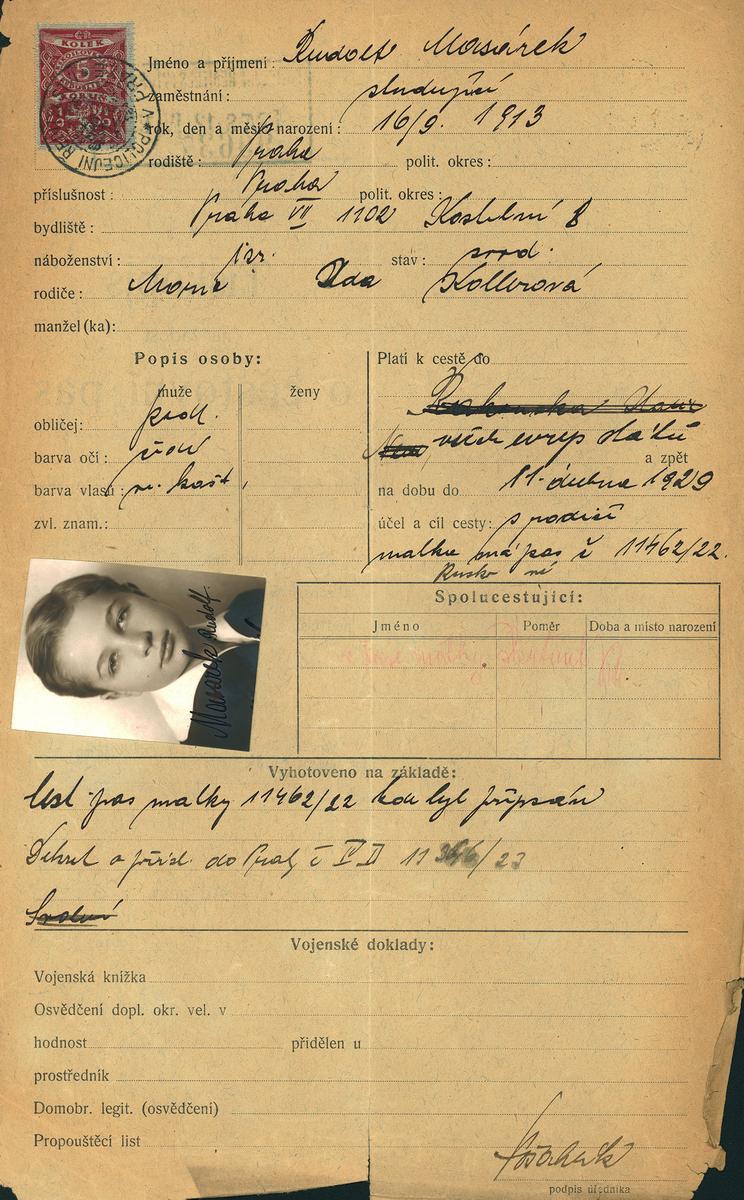 KOLEK
5
Jméno a příjmení: Rudolf Masárek
zaměstnání: studující
rok, den a měsíc narození: 16/9. 1913
rodiště: Praha polit. okres:
příslušnost: Praha polit. okres:
bydliště: Praha VII 1102 Kostelní 8
náboženství: izr. stav: svob.
rodiče: Ida Kollerová
manžel(ka):
Popis osoby:
muže ženy
obličej: podl.
barva očí:
barva vlasů: kašt.
zvl. znam.:
Platí k cestě do
Rakouska
všech evrop států
a zpět
na dobu do 11. dubna 1929
účel a cíl cesty: s rodiči
matka má pas č 11462/22.
Rusko ne
Spolucestující:
Jméno Poměr Doba a místo narození
matky
Masárek Rudolf.
Vyhotoveno na základě:
cest. pas matky 11462/22 kde byl připsán
Dekret o do Prahy č II D 11 366/23
Vojenské doklady:
Vojenská knížka
Osvědčení dopl. okr. vel. v
hodnost přidělen u
prostředník
Domobr. legit. (osvědčení)
Propouštěcí list
podpis úředníka